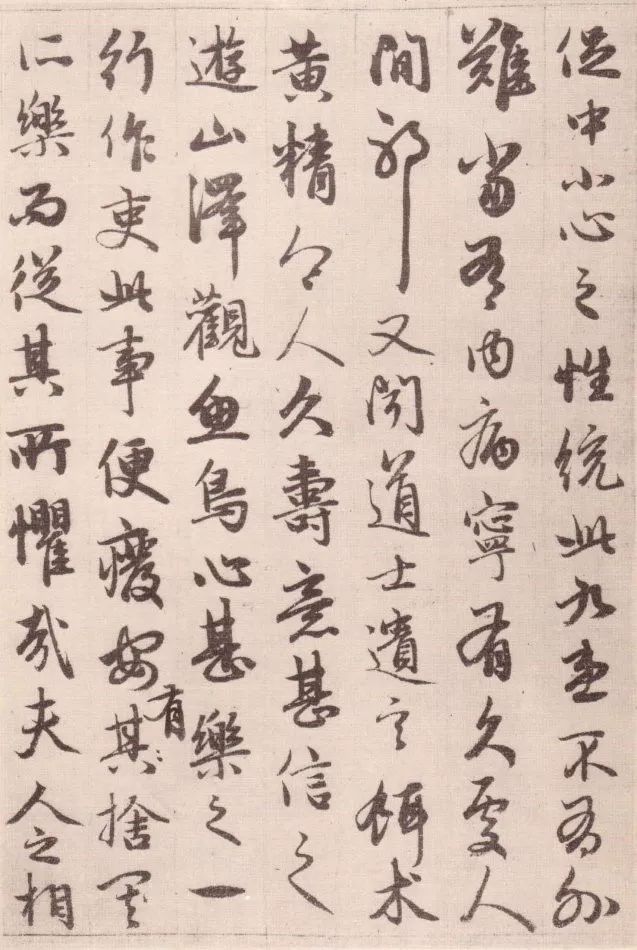 促中小心之性統此九患不有外
難當有內病寧有久處人
間邪又聞道士遺言餌朮
黃精令人久壽意甚信之
遊山澤觀魚鳥心甚樂之一
行作吏此事便廢安有其捨其
所樂而從其所懼哉夫人之相